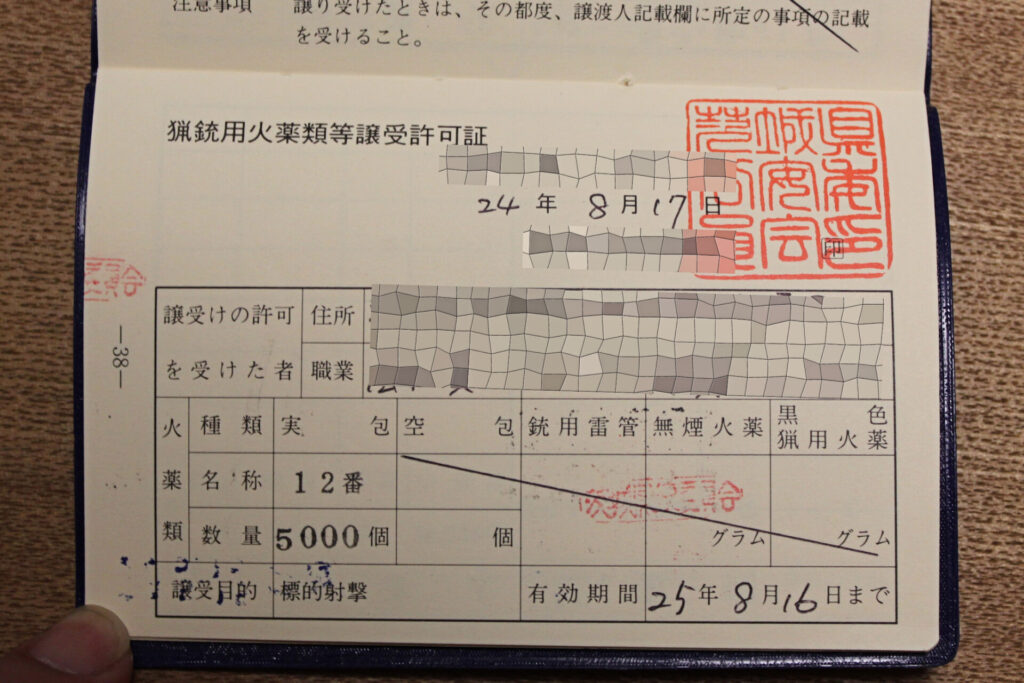 注意事項 譲り受けたときは、その都度、譲渡人記載欄に所定の事項の記載
を受けること。
猟銃用火薬類等譲受許可証
24年 8月17日
印
―38―
譲受けの許可を受けた者
住所
職業
火薬類
種類 実包 空包 銃用雷管 無煙火薬 黒色猟用火薬
名称 12番
数量 5000個 個 グラム グラム
譲受目的 標的射撃 有効期間 25年8月16日まで